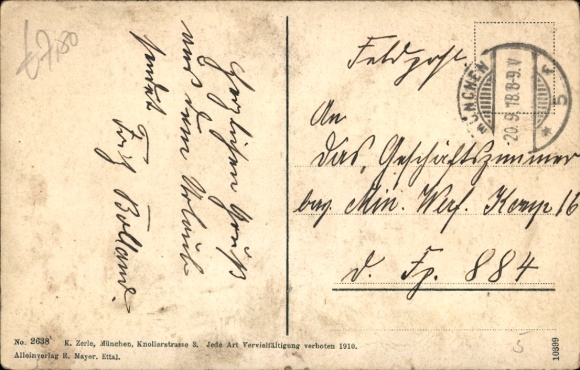 € 7,80
Herzlichen Gruß
aus dem Urlaub
sendet
Fritz Bolland.
Feldpost.
MÜNCHEN
20.9.18.8-9.V
* 5 F
An
das Geschäftszimmer
bay. Min. Werf. Komp 16
d. Fp. 884
No. 2638 K. Zerle, München, Knollerstrasse 3. Jede Art Vervielfältigung verboten 1910.
Alleinverlag R. Mayer. Ettal.
10899
5